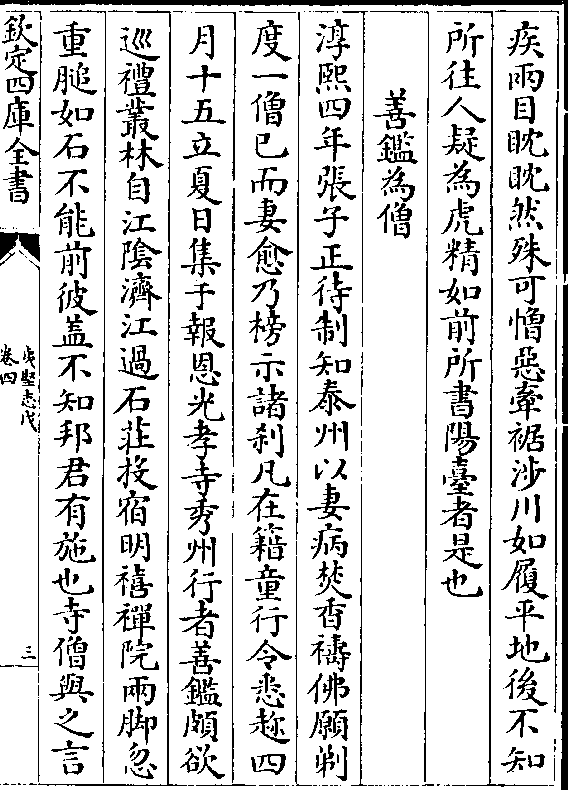 疾兩目眈眈然殊可憎惡牽裾涉川如履平地後不知
所往人疑為虎精如前所書陽臺者是也
善鑑為僧
淳熙四年張子正待制知泰州以妻病焚香禱佛願剃
度一僧已而妻愈乃榜示諸剎凡在籍童行令悉趂四
月十五立夏日集于報恩光孝寺秀州行者善鑑頗欲
巡禮叢林自江陰濟江過石莊投宿明禧禪院兩脚忽
重腿如石不能前彼蓋不知邦君有施也寺僧與之言
欽定四庫全書
夷堅志戊
卷四
三